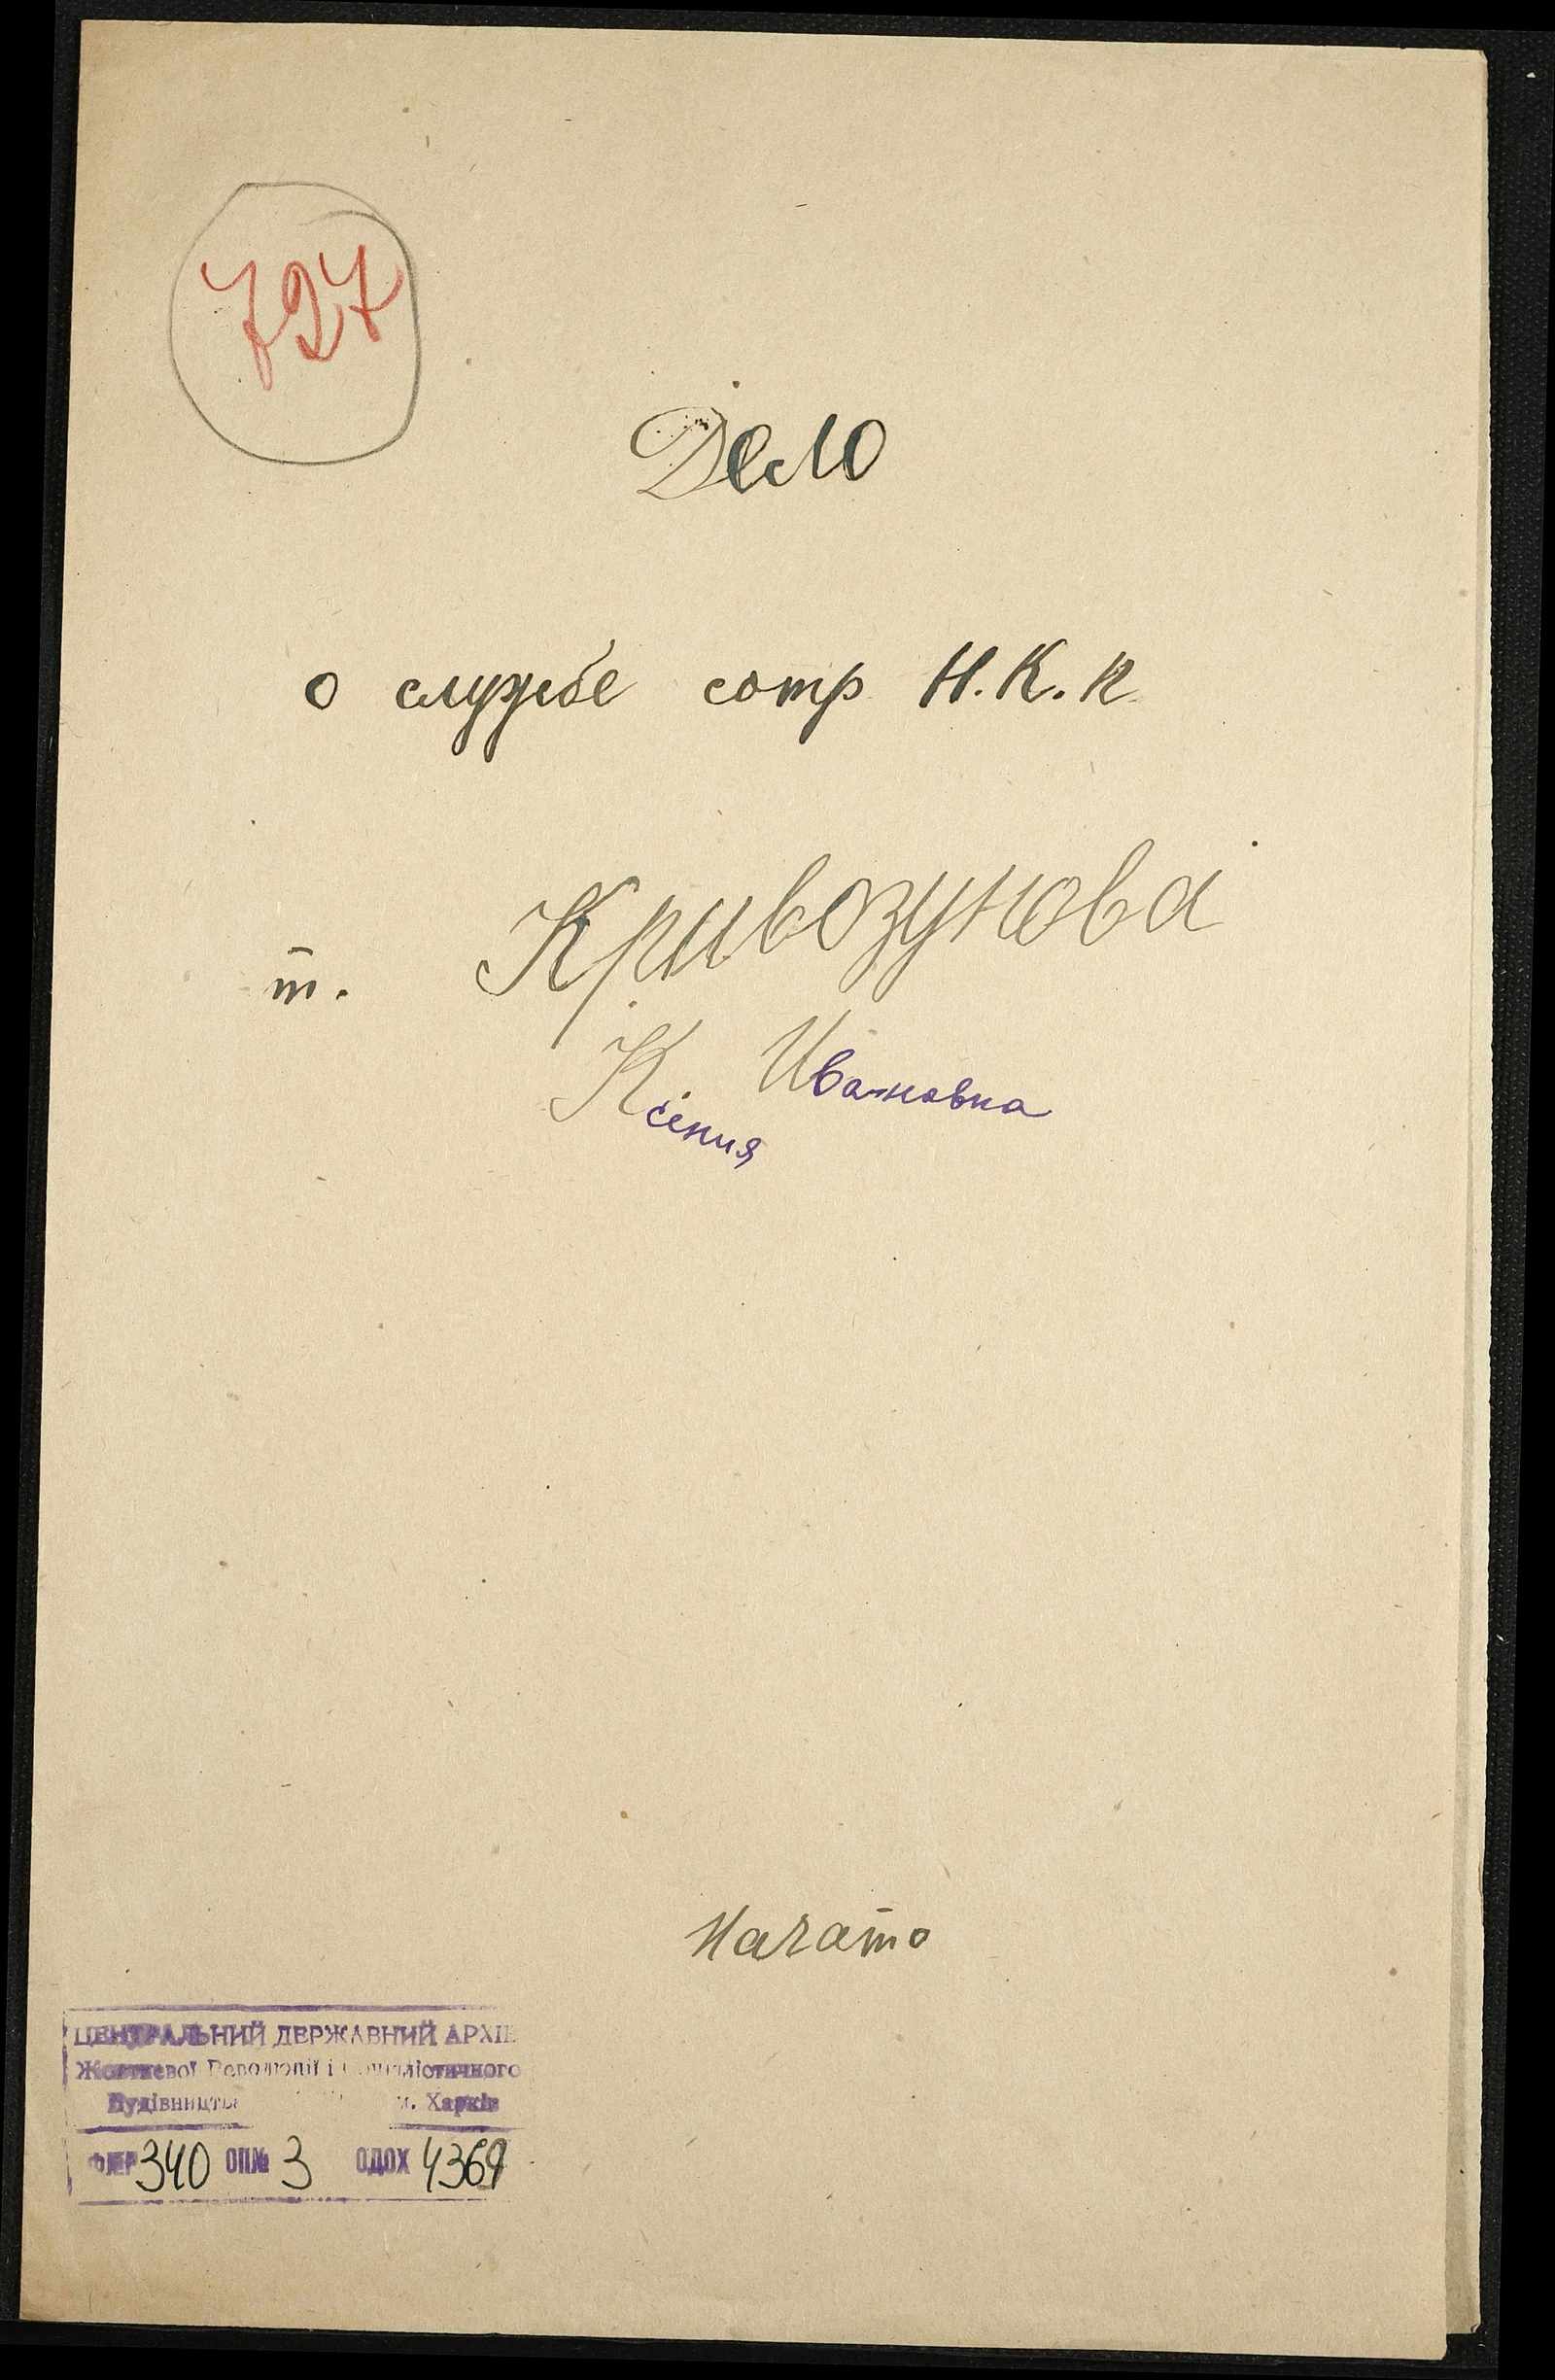 727
Дело
о службе сотр Н.К.п.
т. Кривозунова
К. Ивановна
сения
Начато
ЦЕНТРАЛЬНИЙ ДЕРЖАВНИЙ АРХІВ
Жовтневої Революції і Соціалістичного
Будівництва м. Харків
340 ОП№ 3 ОДОХ 4369